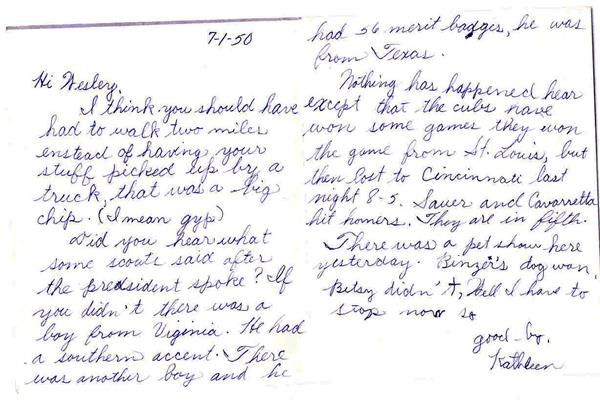 7-1-50
Hi Wesley,
I think you should have
had to walk two miles
instead of having your
stuff picked up by a
truck, that was a big
chip. (I mean gyp)
Did you hear what
some scouts said after
the president spoke? If
you didn't there was a
boy from Viginia. He had
a southern accent. There
was another boy and he
had 56 merit badges, he was
from Texas.
Nothing has happened hear
except that the cubs have
won some games they won
the game from St. Louis, but
then lost to Cincinnati last
night 8-5. Sauer and Cavarretta
hit homers. They are in fifth.
There was a pet show here
yesterday. Binzer's dog won,
Betsy didn't, Well I have to
stop now so
good-by,
Kathleen